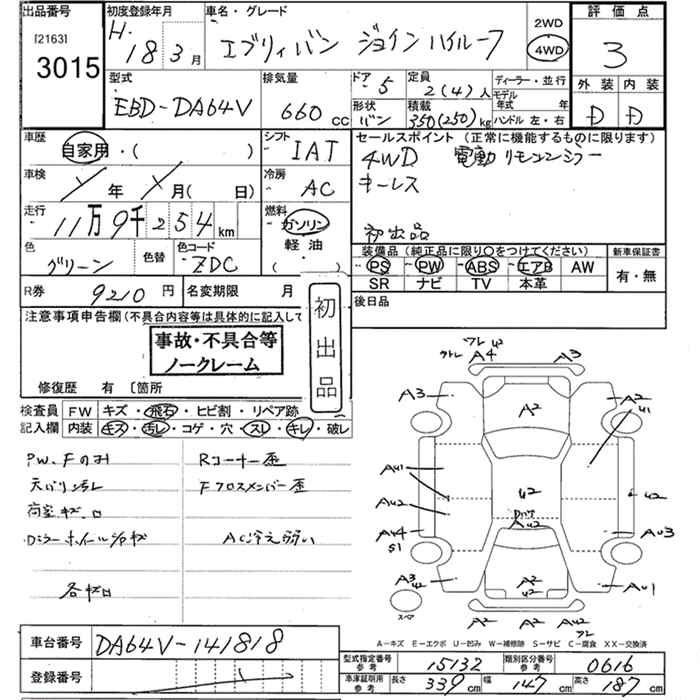 出品番号 初度登録年月 車名・グレード 2WD 評価点
[2163] H. 18年 3月 エブリィバン ジョインハイルーフ 4WD 3
3015
型式 排気量 ドア 5 定員 2(4)人 ディーラー・並行 外装 内装
EBD-DA64V 660 CC 形状 バン 積載 350(250)kg モデル年式 年 ハンドル 左・右 D D
車歴 自家用・( ) シフト IAT セールスポイント (正常に機能するものに限ります)
4WD 電動リモコンミラー
車検 年 月( 日) 冷房 AC キーレス
走行 11万9千254km 燃料 ガソリン 軽油 ( ) 初出品
色 グリーン 色替 色コード ZDC
装備品 (純正品に限り○をつけてください) 新車保証書
PS PW ABS エアB AW 有・無
SR ナビ TV 本革
R券 9210円 名変期限 月 後日品
注意事項申告欄(不具合内容等は具体的に記入して
事故・不具合等
ノークレーム
初出品
修復歴 有 〔箇所
検査員 FW キズ・飛石・ヒビ割・リペア跡
記入欄 内装 キズ・汚レ・コゲ・穴・スレ・キレ・破レ
PW、Fのみ Rコーナー歪
天バリ汚レ Fクロスメンバー歪
荷室キズ、凹
Dミラーホイール汚キズ AC冷え弱い
各キズ凹
A4 U2 A3
A3 A2 A2
U1
AU1 U2 U2
AU2 AU2
A44 S1 AU3
A3 U2 A2 U2 AU1
A2 A2 AU2
スペア
A-キズ E-エクボ U-凹み W-補修跡 S-サビ C-腐食 XX-交換済
車台番号 DA64V-141818
登録番号
型式指定番号 参考 15132 類別区分番号 参考 0616
車庫証明用 参考 長さ 339cm 幅 147cm 高さ 187cm